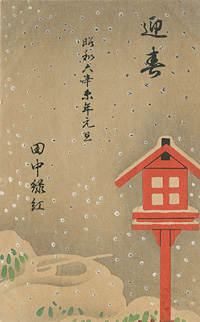 迎春
昭和六辛未年元旦
田中緑紅